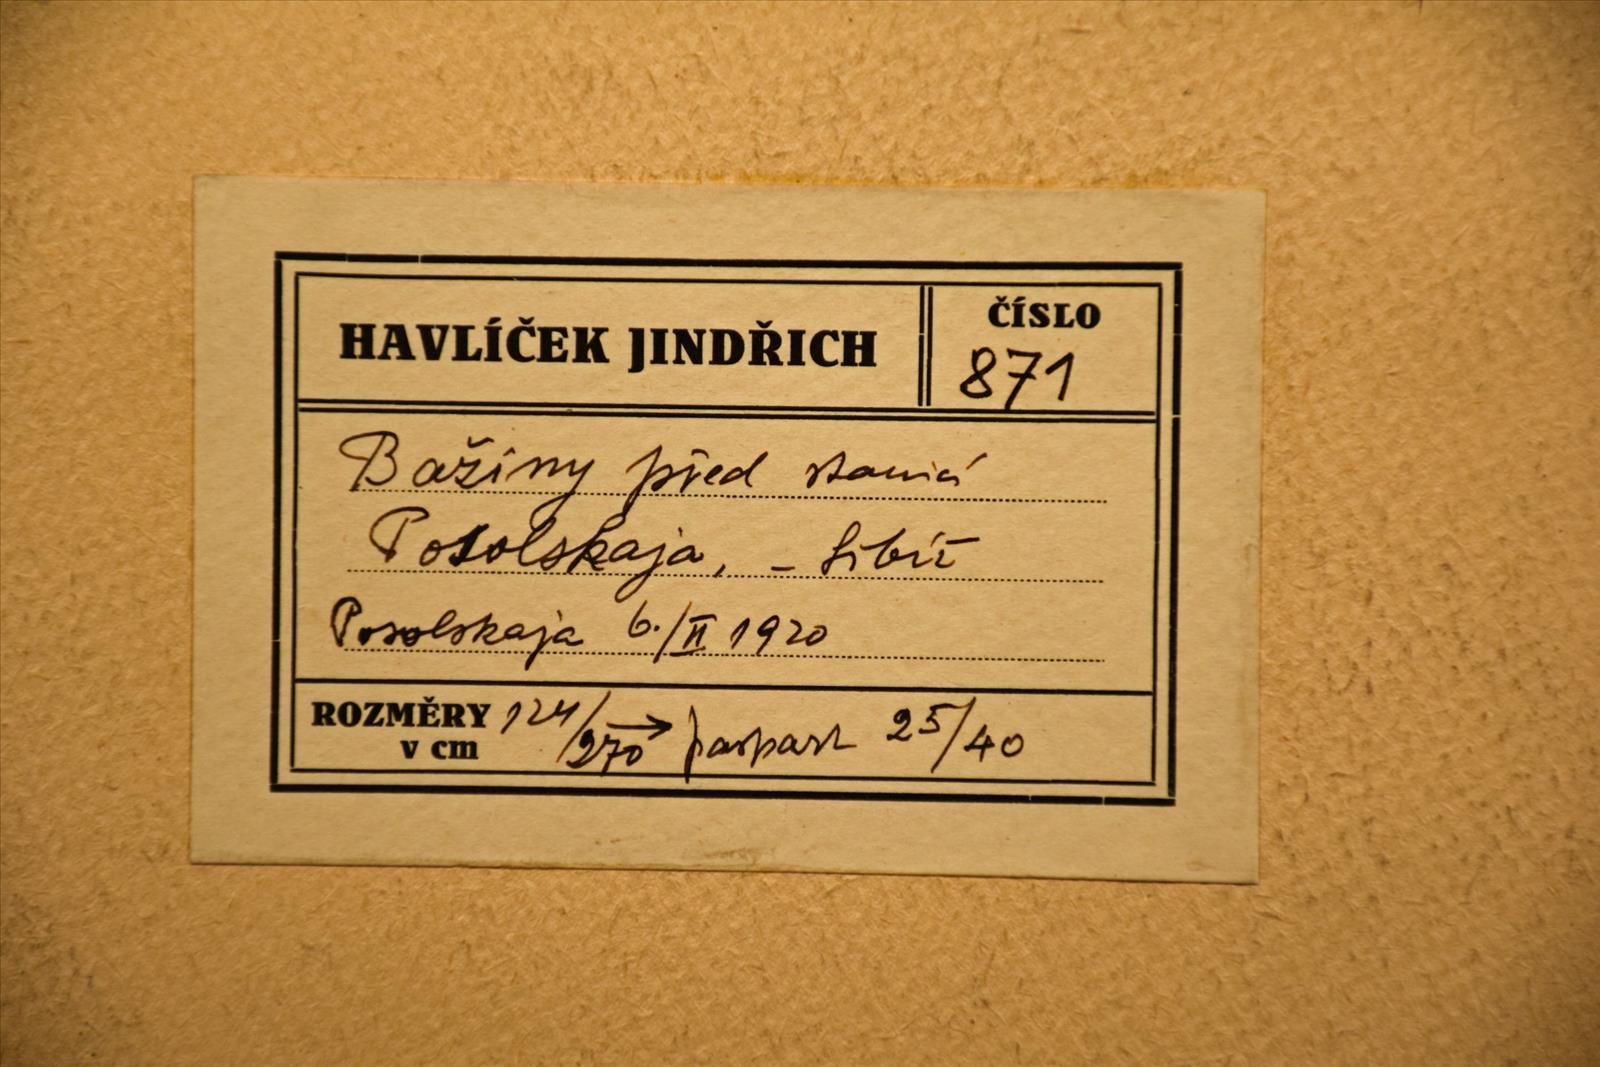 HAVLÍČEK JINDŘICH
ČÍSLO
871
Bažiny před stanicí
Posolskaja, – Sibiř
Posolskaja 6./II 1920
ROZMĚRY 124/270 → paspart 25/40
v cm